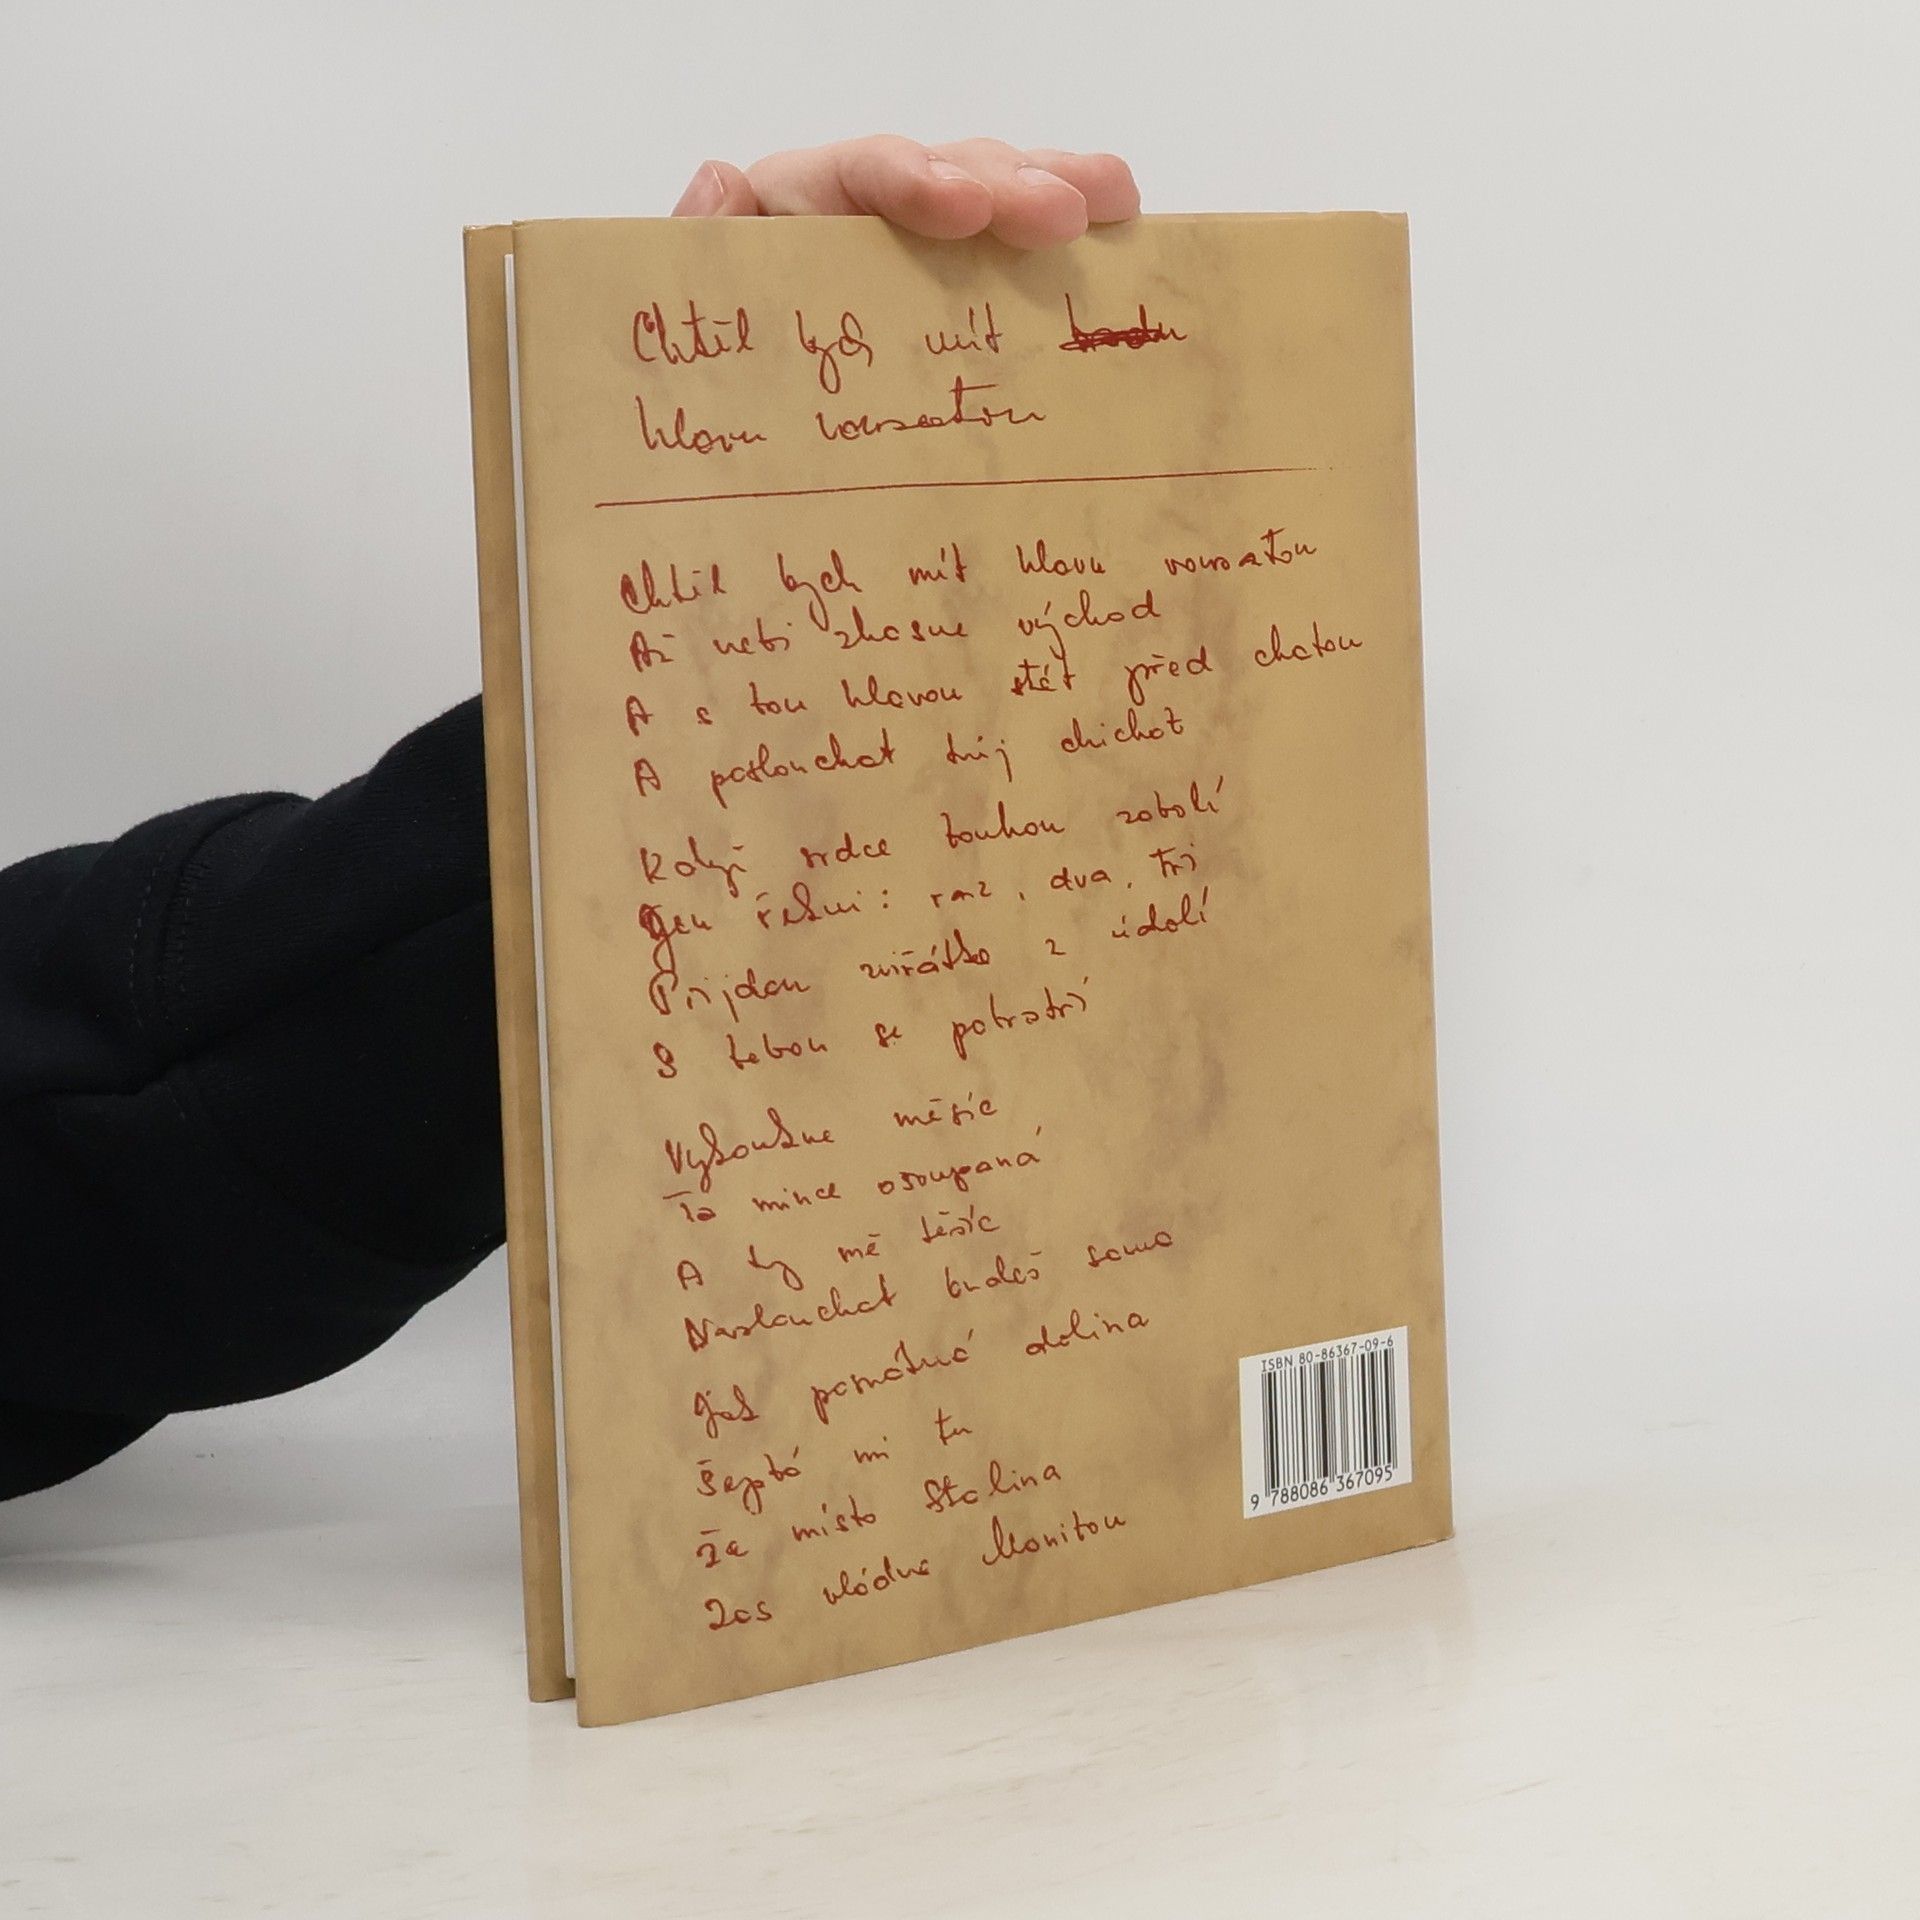 Chtěl bych mít
hlavu vousatou
Chtěl bych mít hlavu vousatou
Až nebi zhasne východ
A s tou hlavou stát před chatou
A poslouchat tvůj chichot
Když srdce touhou zabolí
Jen řekni: raz, dva, tři
Přijdou zvířátka z údolí
S tebou se pobratří
Vykoukne měsíc
Ta mince osoupaná
A ty mě těšíc
Naslouchat budeš sama
Jak pomátlá dolina
Šeptá mi tu
Že místo Stalina
Zas vládne Manitou
ISBN 80-86367-09-6
9 788086 367095